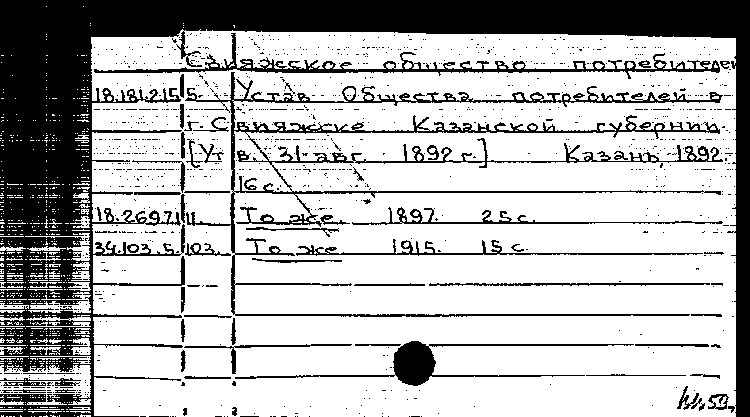 Свияжское общество потребителей
18.181.2.15 5. Устав Общества потребителей в
г. Свияжске Казанской губернии.
[Утв. 31-авг. 1892 г.] Казань, 1892.
16 с.
18.269.7.1 11. То же. 1897. 25 с.
34.103.5. 103. То же 1915. 15 с.